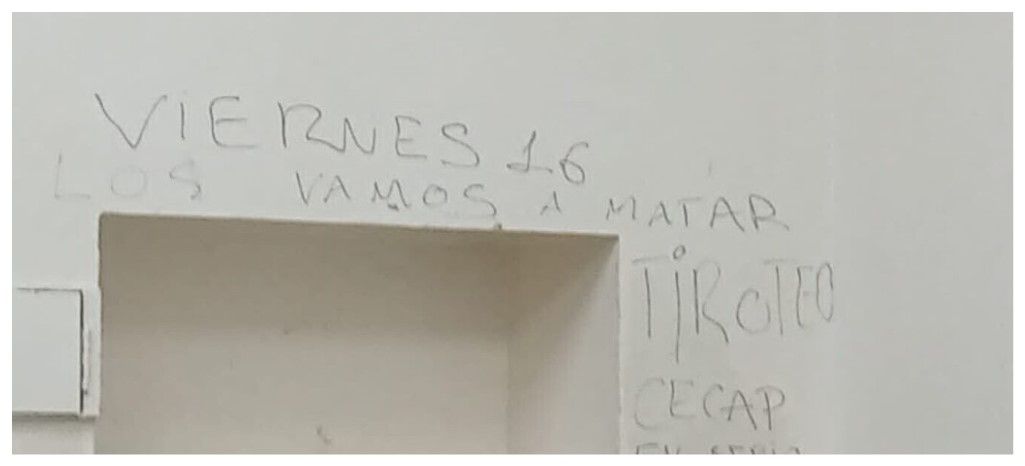 ViERNES 16
LOS VAMOS A MATAR
TiROTEO
CECAP
EN SERIO